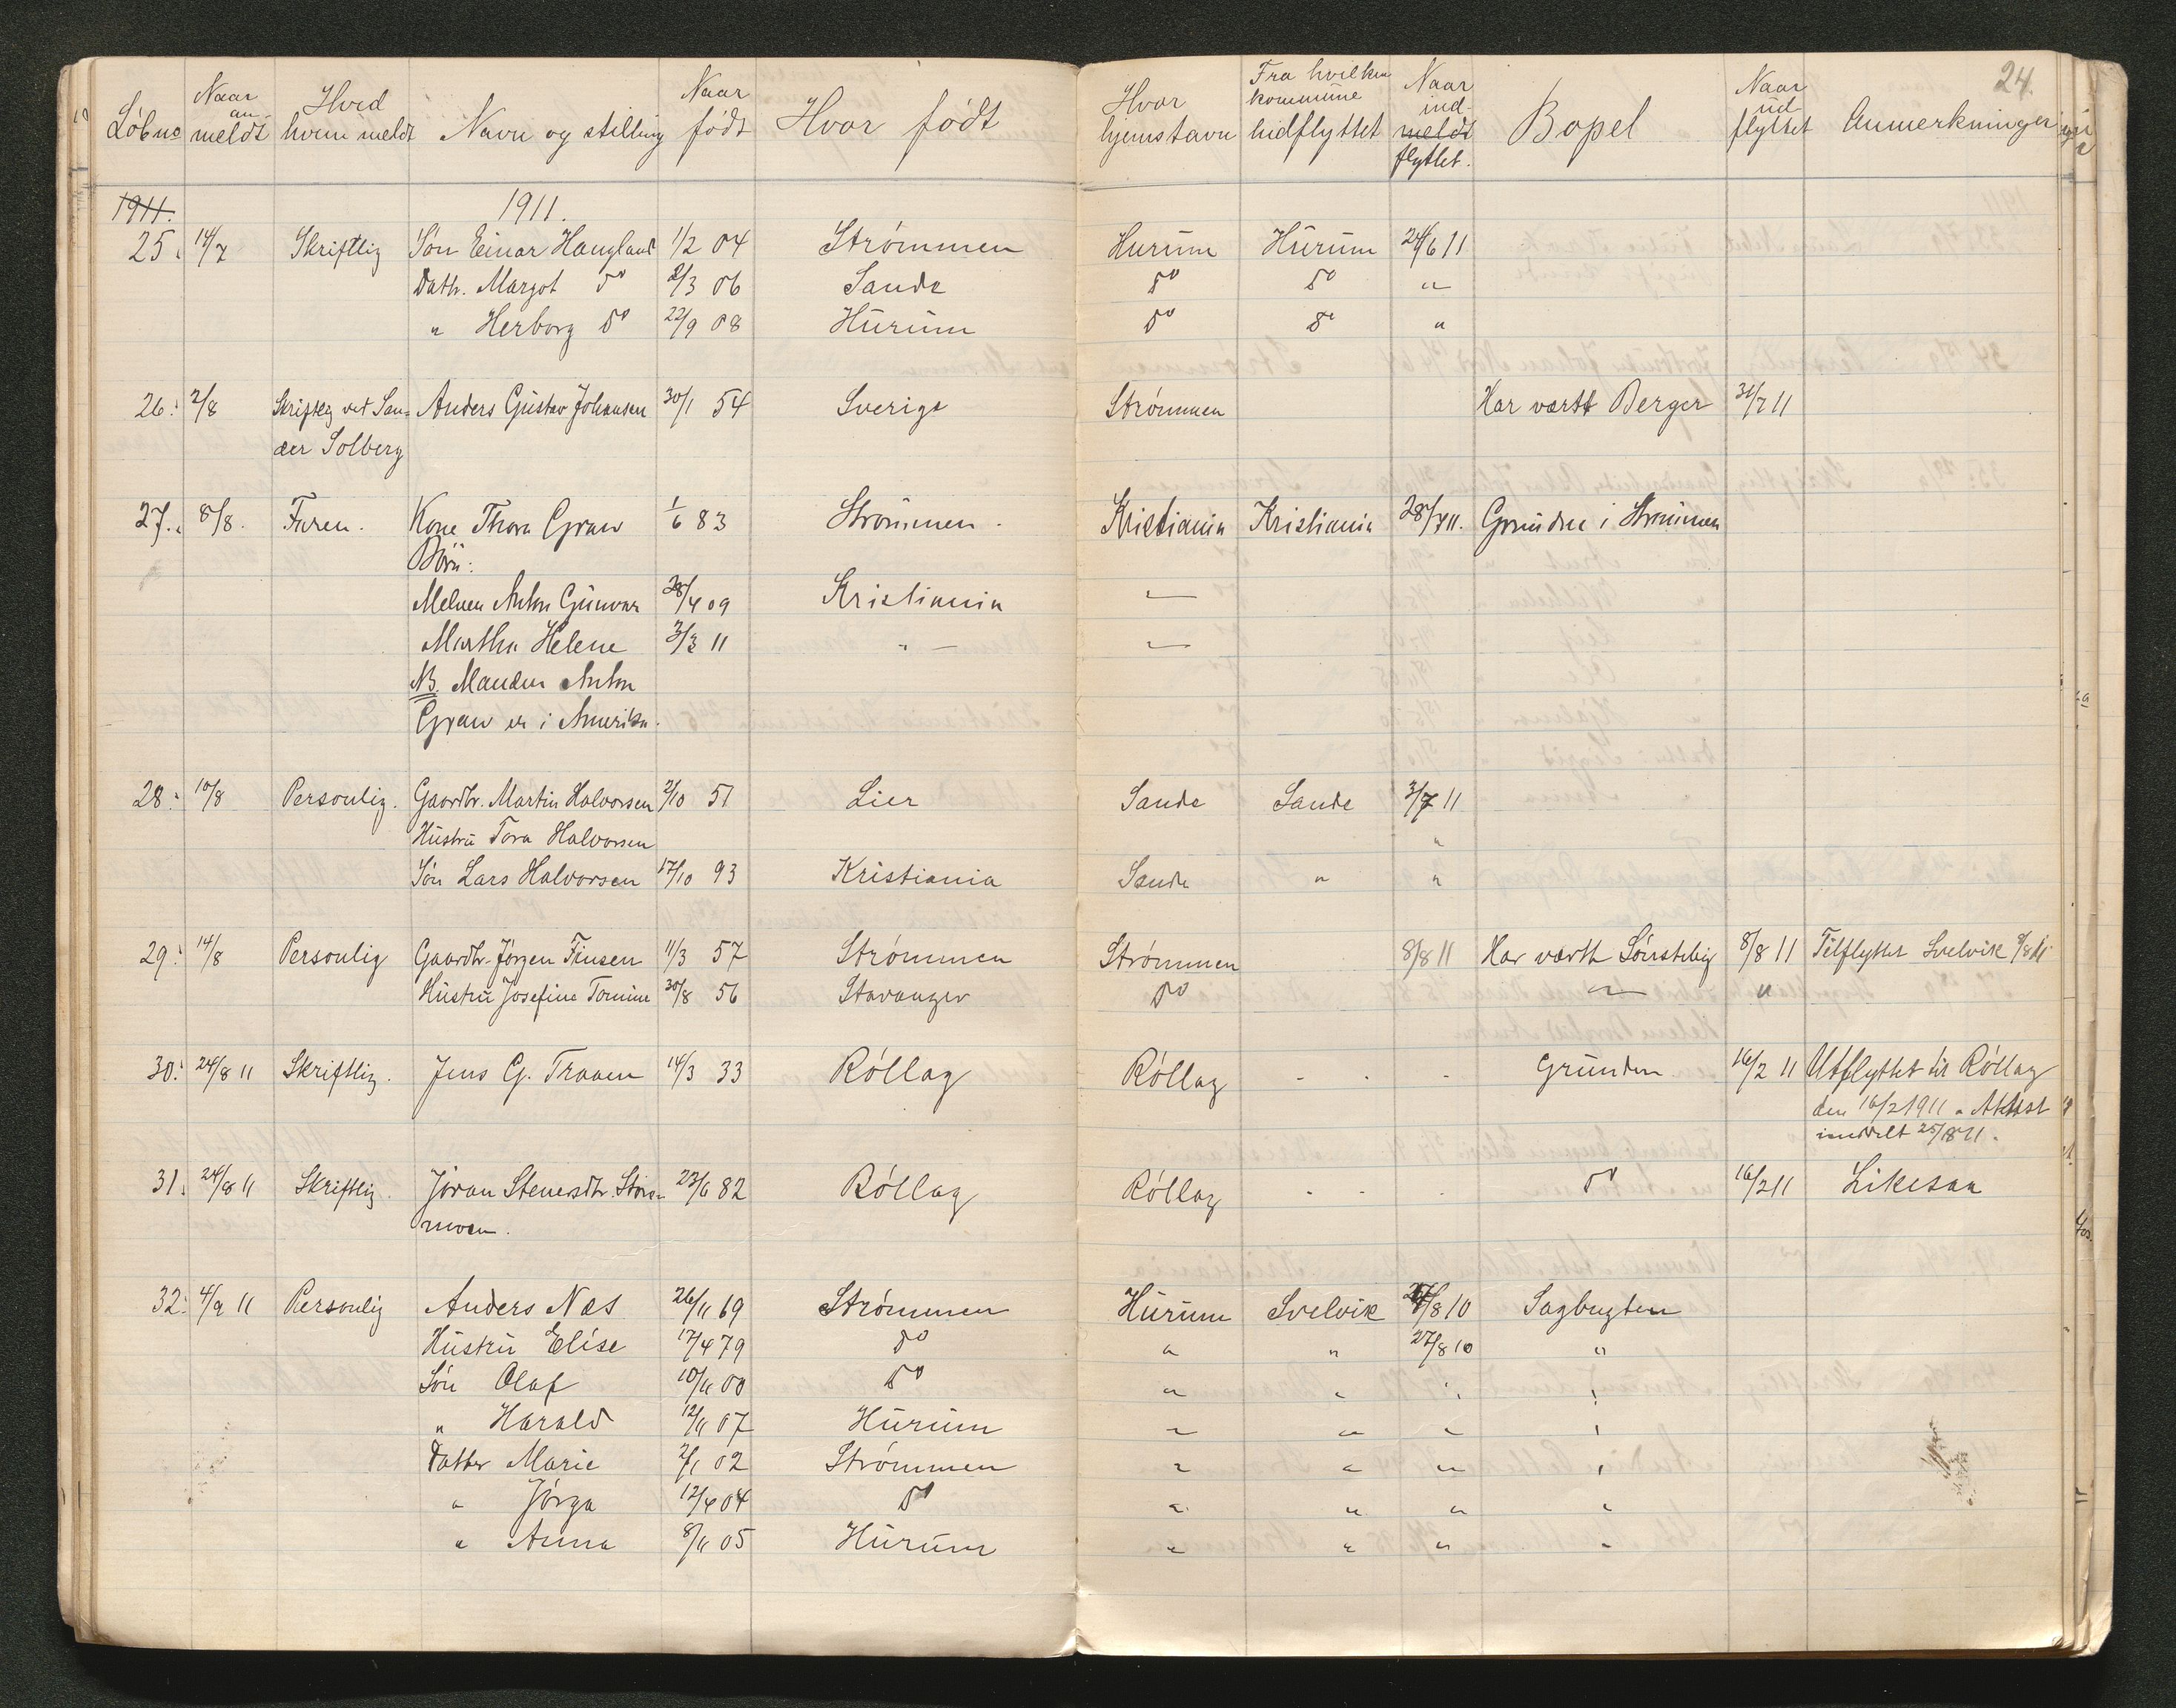 24.
Löbno Naar an- meldt Hved hvem meldt Navn og stilling Naar födt Hvor födt Hvor hjemstavn Fra hvilken kommune hidflyttet Naar ind- meldt flyttet. Bopel Naar ud flyttet Anmerkninger
1911. 1911.
25. 14/7 Skriftlig Sön Einar Haugland 1/2 04 Strömmen Hurum Hurum 24/6 11
Datr. Margot do 2/3 06 Sande do do "
" Herborg do 22/9 08 Hurum do do "
26. 2/8 Skriftlig ved San- Anders Gustav Johansen 30/1 54 Sverige Strömmen Har vært Berger 31/7 11
der Solberg
27. 8/8. Faren. Kone Thora Graw 1/6 83 Strömmen. Kristiania Kristiania 28/7 11. Grunden i Strömmen
Börn:
Anton Gunvar 28/4 09 Kristiania "
Martha Helene 3/3 11 " "
NB. Manden Anton
Graw er i Amerika.
28. 10/8 Personlig. Gaardbr. Martin Halvorsen 2/10 51 Lier Sande Sande 3/7 11
Hustru Tora Halvorsen "
Sön Lars Halvorsen 17/10 93 Kristiania Sande " "
29. 14/8 Personlig Gaardbr. Jörgen Finsen 11/3 57 Strömmen Strömmen 8/8 11 Har vært Sönstebig 8/8 11 Tilflyttet Svelvik 8/8 11
Hustru Josefine Tomine 30/8 56 Stavanger do " "
30. 24/8 11 Skriftlig. Jens G. Traaen 14/3 33 Röllag Röllag - - - Grunden 16/2 11 Utflyttet til Röllag
den 16/2 1911. Attest
inndelt 25/8 11.
31. 24/8 11 Skriftlig. Jöran Stenersdtr. Stor- 23/6 82 Röllag Röllag - - - do 16/2 11 Likesaa
moen.
32. 4/9 11 Personlig Anders Næs 26/11 69 Strömmen Hurum Svelvik 27/8 10 Sagbugten
Hustru Elise 17/4 79 do " " 27/8 10 "
Sön Olaf 10/11 00 do " " " "
" Harald 12/11 07 Hurum " " " "
Datter Marie 2/1 02 Strömmen " " " "
" Jörga 12/4 04 do " " " "
" Anna 8/11 05 Hurum " " " "